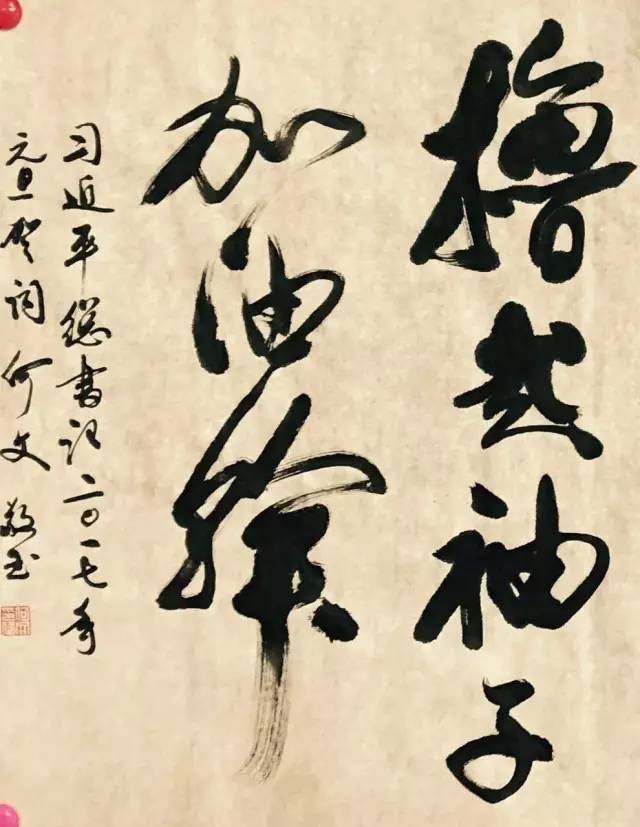 撸起袖子
加油干
习近平总书记二〇一七年
元旦贺词 何文敬书